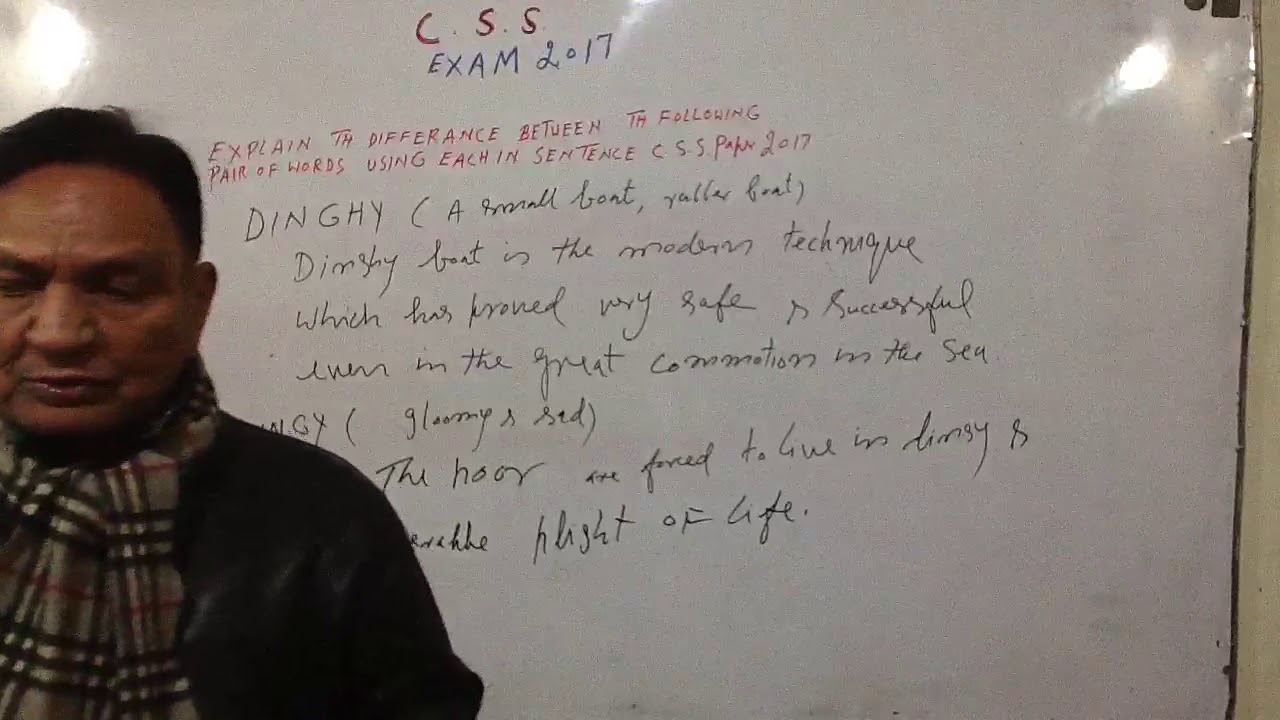 C. S. S.
EXAM 2017
EXPLAIN TH DIFFERANCE BETWEEN TH FOLLOWING
PAIR OF WORDS USING EACH IN SENTENCE C.S.S. Paper 2017
DINGHY ( A small boat, boat)
Dinghy boat is the modern technique
Which has proved very safe & successful
even in the great commotion in the sea.
NGY ( gloomy & sad)
The poor are forced to live in dingy &
plight OF life.